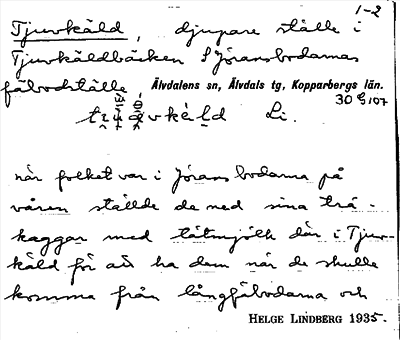 1-2
Tjuvkäld, djupare ställe i
Tjuvkäldbäcken S Jöransbodarnas
fäbodställe, Älvdalens sn, Älvdals tg, Kopparbergs län.
30 G 107
Li.
när folket var i Jöransbodarna på
våren ställde de ned sina trä-
kaggar med tätmjölk där i Tjuv-
käld för att ha dem när de skulle
komma från långfäbodarna och
HELGE LINDBERG 1935.